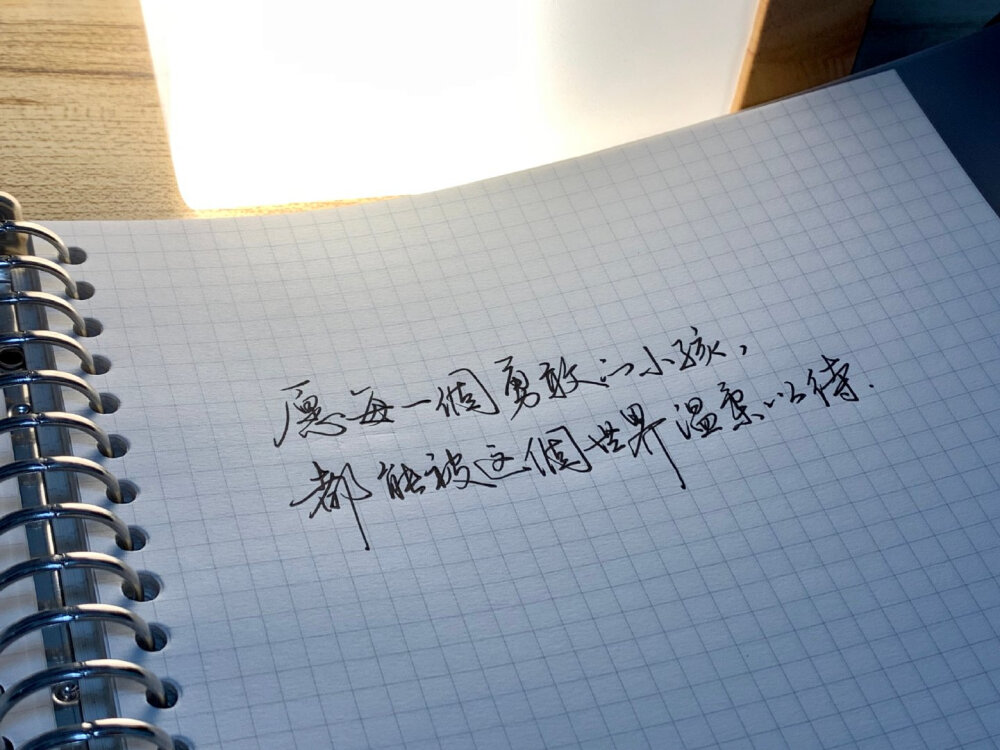 愿每一個勇敢的小孩,
都能被这個世界温柔以待.